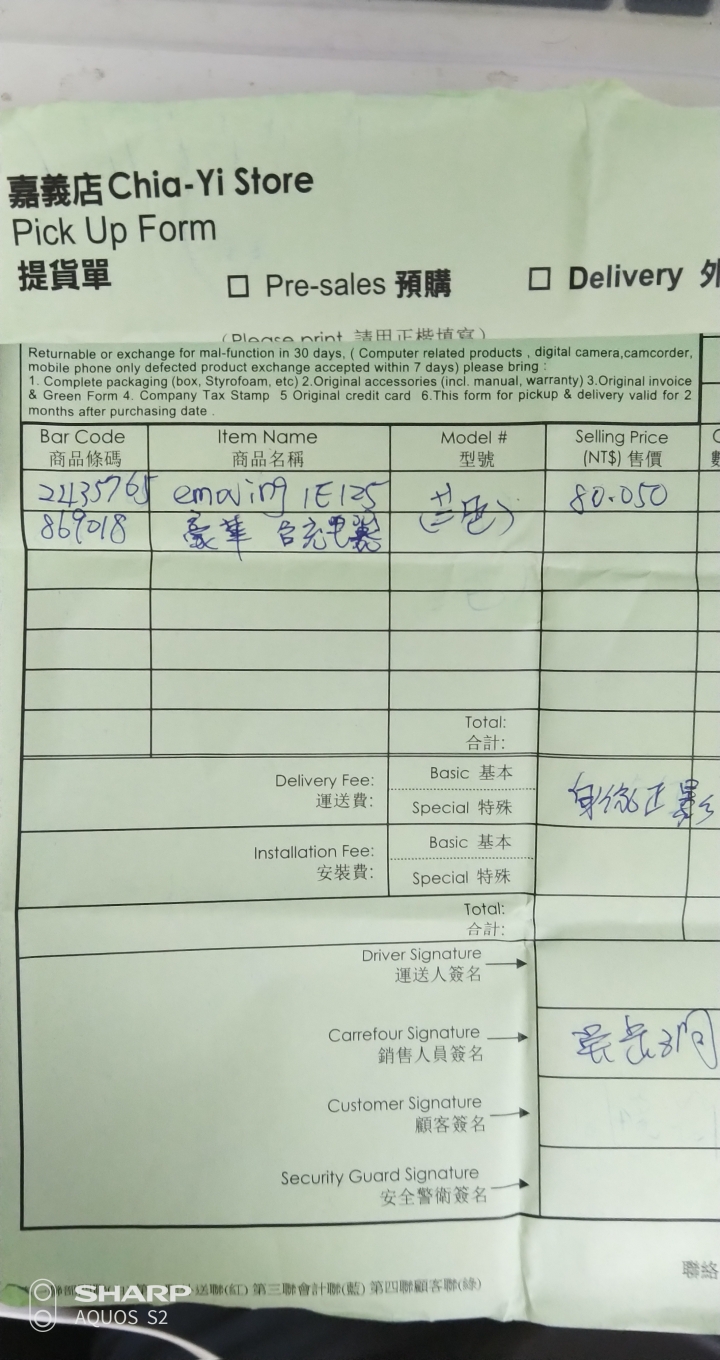 嘉義店 Chia-Yi Store
Pick Up Form
提貨單 □ Pre-sales 預購 □ Delivery 外
(Please print 請用正楷填寫)
Returnable or exchange for mal-function in 30 days, ( Computer related products , digital camera,camcorder,
mobile phone only defected product exchange accepted within 7 days) please bring :
1. Complete packaging (box, Styrofoam, etc) 2.Original accessories (incl. manual, warranty) 3.Original invoice
& Green Form 4. Company Tax Stamp 5 Original credit card 6.This form for pickup & delivery valid for 2
months after purchasing date .
Bar Code Item Name Model # Selling Price
商品條碼 商品名稱 型號 (NT$) 售價
2435765 emoving iE125 80.050
869018 豪華 含充電器
Total:
合計:
Delivery Fee: Basic 基本
運送費: Special 特殊
Installation Fee: Basic 基本
安裝費: Special 特殊
Total:
合計:
Driver Signature
運送人簽名
Carrefour Signature
銷售人員簽名
Customer Signature
顧客簽名
Security Guard Signature
安全警衛簽名
聯絡
送聯(紅) 第三聯會計聯(藍) 第四聯顧客聯(綠)
SHARP
AQUOS S2